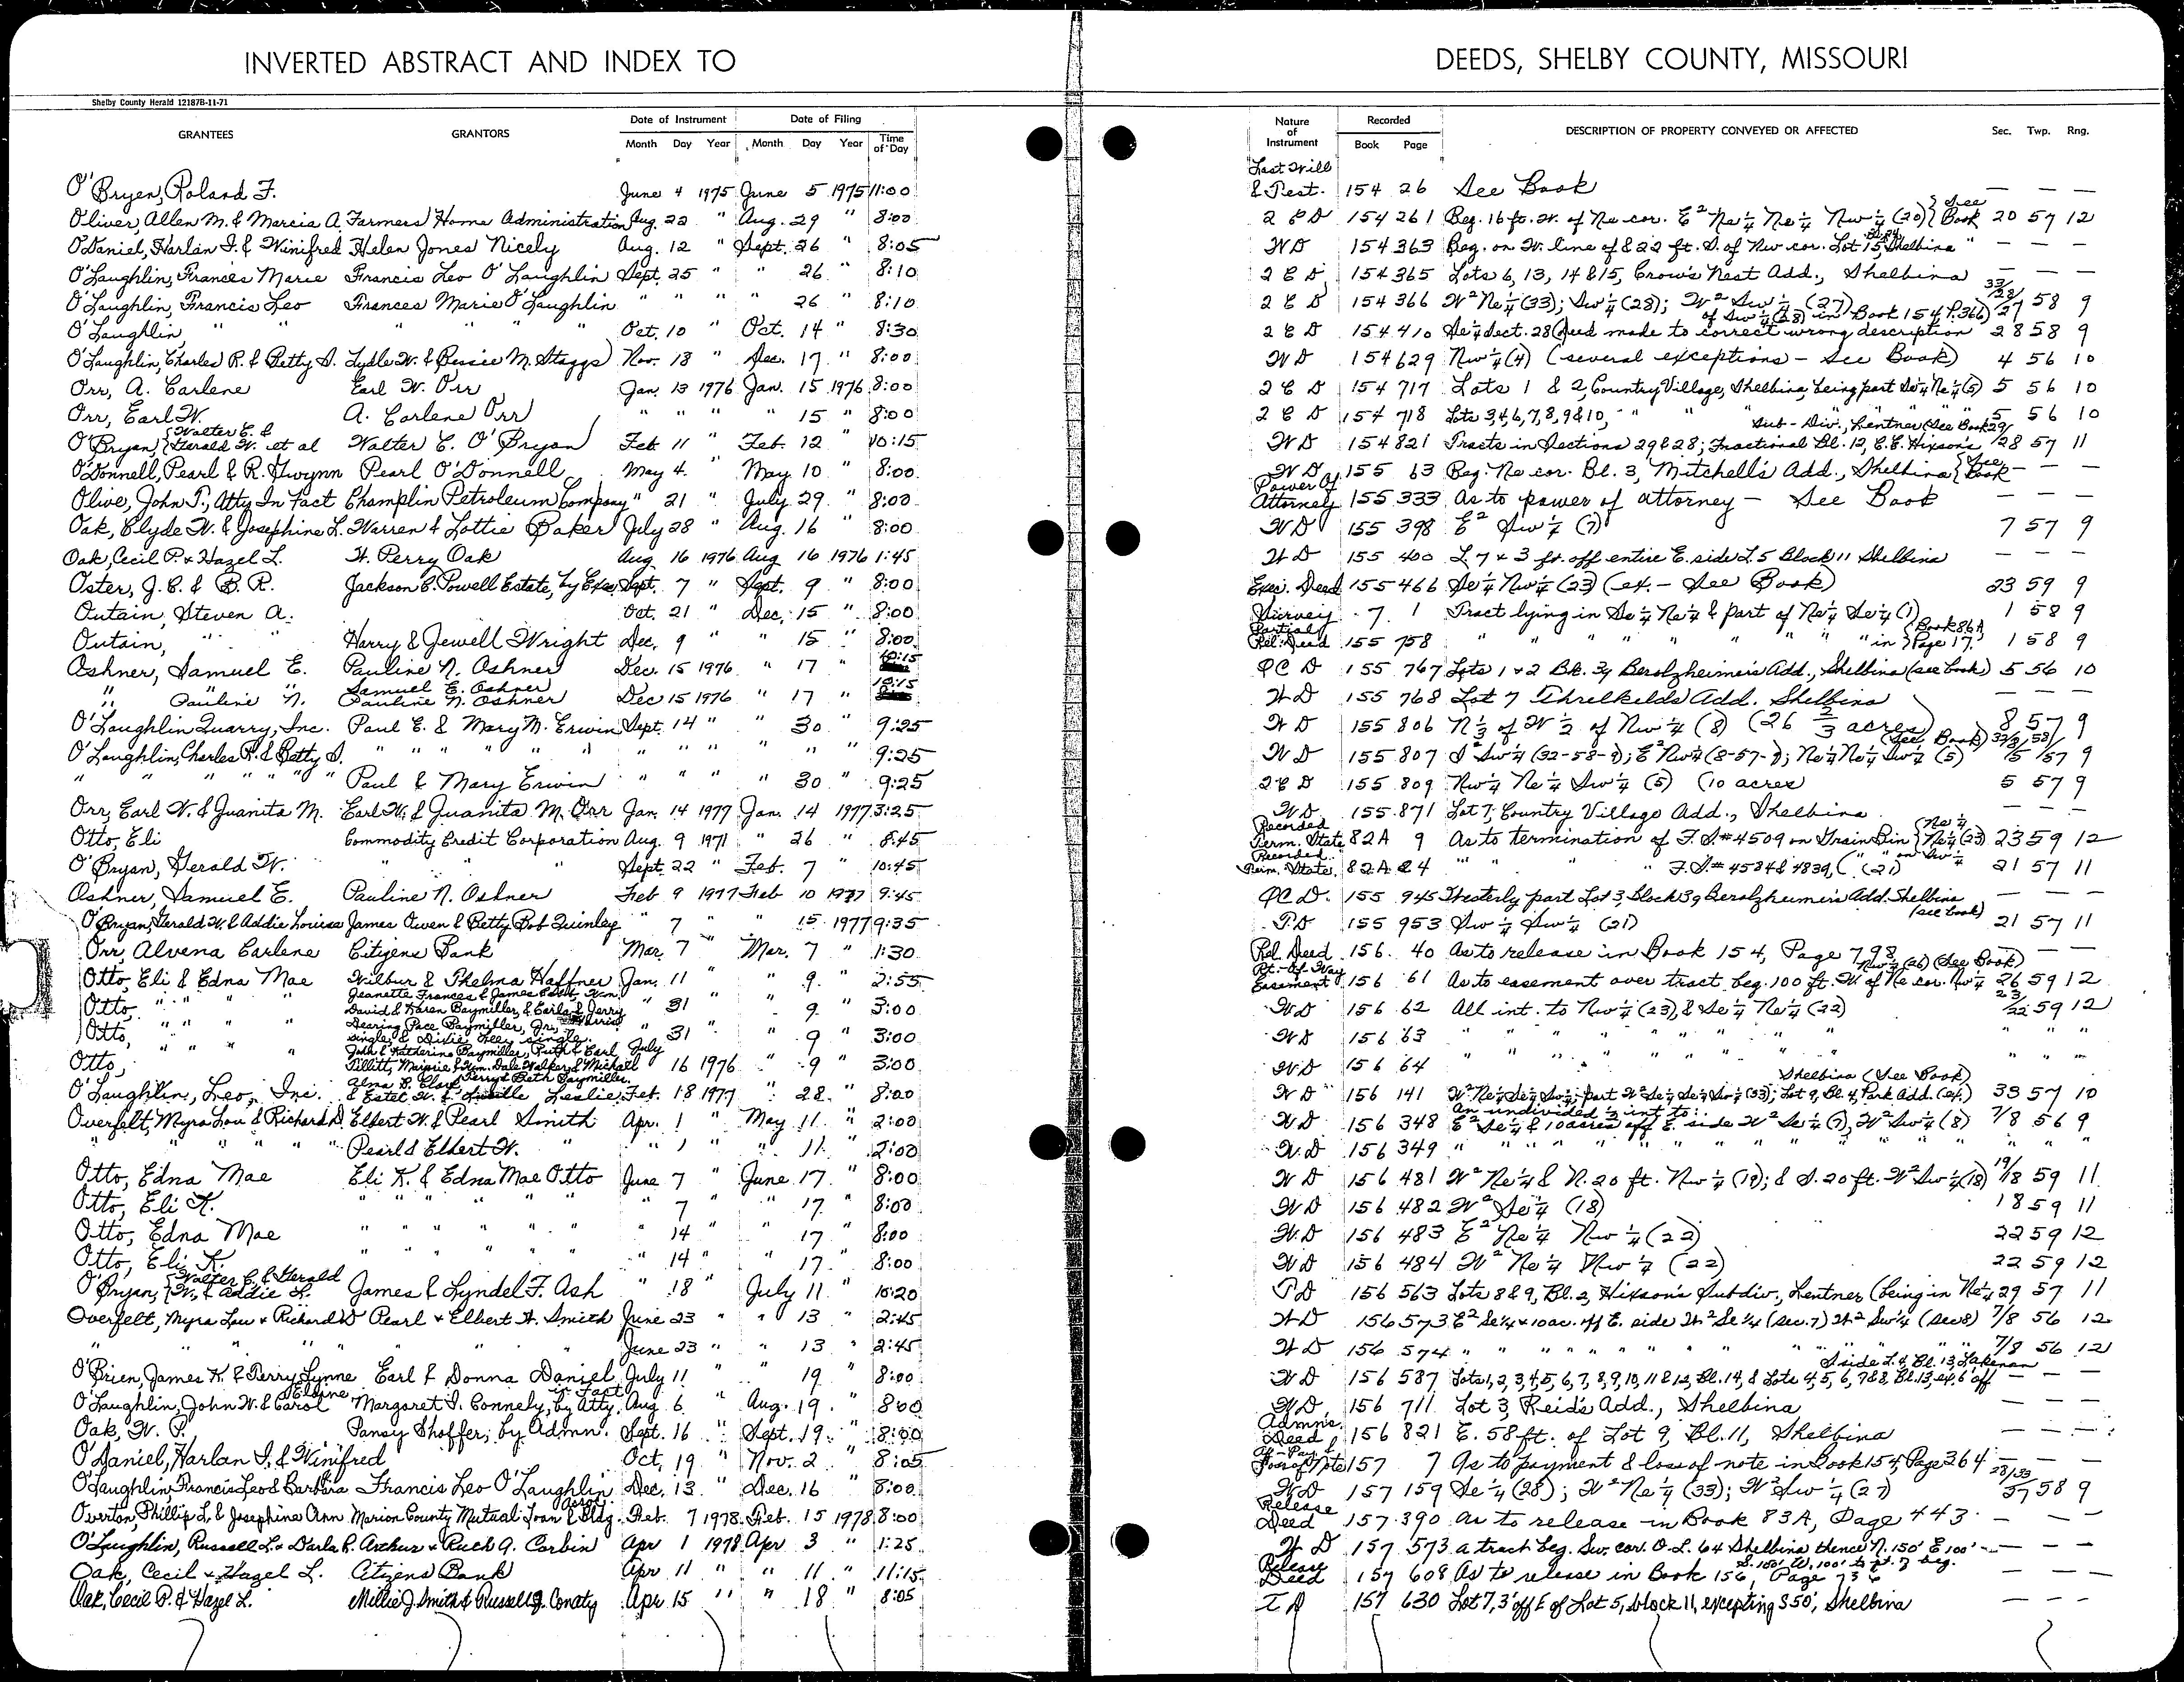 INVERTED ABSTRACT AND INDEX TO DEEDS, SHELBY COUNTY, MISSOURI
Shelby County Herald 12187B-11-71
GRANTEES GRANTORS Date of Instrument Month Day Year Date of Filing Month Day Year Time of Day Nature of Instrument Recorded Book Page DESCRIPTION OF PROPERTY CONVEYED OR AFFECTED Sec. Twp. Rng.
O'Bryen, Roland F. June 4 1975 June 5 1975 11:00 Last Will & Test. 154 26 See Book — — —
Oliver, Allen M. & Marcia A. Farmers Home Administration Aug. 22 " Aug. 29 " 8:00 2 C D 154 261 Beg. 16 ft. W. of Ne cor. E² Ne¼ Ne¼ Nw¼ (20) {See Book 20 57 12
O'Daniel, Harlan I. & Winifred Helen Jones Nicely Aug. 12 " Sept. 26 " 8:05 WD 154 363 Beg. on W. line of & 22 ft. S. of Nw cor. Lot 15, Shelbina — — —
O'Laughlin, Frances Marie Francis Leo O'Laughlin Sept. 25 " " 26 " 8:10 2 C D 154 365 Lots 6, 13, 14 & 15, Crow's Nest Add., Shelbina — — —
O'Laughlin, Francis Leo Frances Marie O'Laughlin " " " " 26 " 8:10 2 C D 154 366 W² Ne¼ (33); Sw¼ (28); W² Sw¼ (27) 33/28/27 58 9
O'Laughlin, " " " " " " Oct. 10 " Oct. 14 " 8:30 2 C D 154 410 Se¼ Sect. 28 (Deed made to correct wrong description of Sw¼ (28) in Book 154 P. 366) 28 58 9
O'Laughlin, Charles R. & Betty S. Lydle W. & Bessie M. Staggs Nov. 18 " Dec. 17 " 8:00 WD 154 629 Nw¼ (4) (several exceptions - See Book) 4 56 10
Orr, A. Carlene Earl W. Orr Jan. 13 1976 Jan. 15 1976 8:00 2 C D 154 717 Lots 1 & 2, Country Village, Shelbina, being part Se¼ Ne¼ (5) 5 56 10
Orr, Earl W. A. Carlene Orr " " " " 15 " 8:00 2 C D 154 718 Lots 3, 4, 6, 7, 8, 9 & 10, " " " " " 5 56 10
O'Bryan, {Walter C. & Gerald W. et al Walter C. O'Bryan Feb. 11 " Feb. 12 " 10:15 WD 154 821 Tracts in Sections 29 & 28; Fractional Bl. 12, C.C. Hixson's Sub-Div., Lentner (See Book) 29/28 57 11
O'Donnell, Pearl & R. Gwynn Pearl O'Donnell May 4 " May 10 " 8:00 WD 155 63 Beg. Ne cor. Bl. 3, Mitchell's Add., Shelbina {See Book — — —
Olive, John T., Atty In Fact Champlin Petroleum Company " 21 " July 29 " 8:00 Power of Attorney 155 333 As to power of attorney - See Book — — —
Oak, Clyde W. & Josephine L. Warren & Lottie Baker July 28 " Aug. 16 " 8:00 WD 155 398 E² Sw¼ (7) 7 57 9
Oak, Cecil P. & Hazel L. W. Perry Oak Aug 16 1976 Aug 16 1976 1:45 WD 155 400 L 7 & 3 ft. off entire E. side L 5 Block 11 Shelbina — — —
Oster, J. C. & B. R. Jackson C. Powell Estate, by Exec. Sept. 7 " Sept. 9 " 8:00 Exec. Deed 155 466 Se¼ Nw¼ (23) (ex. - See Book) 23 59 9
Outain, Steven A. Oct. 21 " Dec. 15 " 8:00 Survey 7 1 Tract lying in Se¼ Ne¼ & part of Ne¼ Se¼ (1) 1 58 9
Outain, " " Harry & Jewell Wright Dec. 9 " " 15 " 8:00 Partial Rel. Deed 155 758 " " " " " " " in {Book 86A Page 17. 1 58 9
Oshner, Samuel E. Pauline N. Oshner Dec. 15 1976 " 17 " 10:15 QC D 155 767 Lots 1 & 2 Blk. 39 Berolzheimer's Add., Shelbina (see book) 5 56 10
" Pauline N. " Samuel E. Oshner Pauline N. Oshner Dec 15 1976 " 17 " 10:15 WD 155 768 Lot 7 Threlkelds Add. Shelbina — — —
O'Laughlin Quarry, Inc. Paul E. & Mary M. Erwin Sept. 14 " " 30 " 9:25 WD 155 806 N⅓ of W½ of Nw¼ (8) (26 ⅔ acres) 8 57 9
O'Laughlin, Charles R. & Betty S. " " " " " " " " " " " 9:25 WD 155 807 S² Sw¼ (32-58-9); E² Nw¼ (8-57-9); Ne¼ Ne¼ Sw¼ (5) (See Book)
" " " " " " Paul & Mary Erwin " " " " 30 " 9:25 2 C D 155 809 Nw¼ Ne¼ Sw¼ (5) (10 acres) 5 57 9
Orr, Earl W. & Juanita M. Earl W. & Juanita M. Orr Jan. 14 1977 Jan. 14 1977 3:25 WD 155 871 Lot 7, Country Village Add., Shelbina — — —
Otto, Eli Commodity Credit Corporation Aug. 9 1971 " 26 " 8:45 Recorded Term. State. 82A 9 As to termination of F.S.#4509 on Grain Bin {Ne¼ Ne¼ (23) 23 59 12
O'Bryan, Gerald W. " " " Sept. 22 " Feb. 7 " 10:45 Recorded Term. State. 82A 24 " " " F.S.# 4584 & 4839, ( " " on Sw¼ (21) 21 57 11
Oshner, Samuel E. Pauline N. Oshner Feb 9 1977 Feb 10 1977 9:45 QC D. 155 945 Westerly part Lot 3, Block 39 Berolzheimer's Add. Shelbina (see book) — — —
O'Bryan, Gerald W. & Addie Louise James Owen & Betty Bob Quinley " 7 " " 15 1977 9:35 TD 155 953 Sw¼ Sw¼ (21) 21 57 11
Orr, Alvena Carlene Citizens Bank Mar. 7 " Mar. 7 " 1:30 Rel. Deed 156 40 As to release in Book 154, Page 798 — —
Otto, Eli & Edna Mae Wilbur & Thelma Haffner Jan. 11 " " 9 " 2:55 Rt.-Of-Way Easement 156 61 As to easement over tract beg. 100 ft. W. of Ne cor. Nw¼ Nw¼ (26) (See Book) 26 59 12
Otto, " " " " Jeanette Frances & James David & Karen Baymiller, & Earla & Jerry " 31 " " 9 " 3:00 WD 156 62 All int. to Nw¼ (23), & Se¼ Ne¼ (22) 23/22 59 12
Otto, " " " " Dearing Pace Baymiller, Jr., single & Dixie Lee, single " 31 " " 9 " 3:00 WD 156 63 " " " " " " " " " "
Otto, " " " " John & Katherine Baymiller, Ruth & Earl Tillitt, Marjorie & Wm. Dale Walker & Michael Terry & Beth Baymiller. July 16 1976 " 9 " 3:00 WD 156 64 " " " " " " " " " "
O'Laughlin, Leo, Inc. Alma B. Clark & Estel W. & Lucille Leslie Feb. 18 1977 " 28 " 8:00 WD 156 141 Lot 9, Bl. 4, Park Add. (ex.) Shelbina (See Book) 33 57 10
Overfelt, Myra Lou & Richard D. Elbert W. & Pearl Smith Apr. 1 " May 11 " 2:00 WD 156 348 An undivided ½ int. to: E² Se¼ & 10 acres off E. side W² Se¼ (7), W² Sw¼ (8) 7/8 56 9
" " " " " Pearl & Elbert W. " " 1 " " 11 " 2:00 WD 156 349 " " " " " " " " " " "
Otto, Edna Mae Eli K. & Edna Mae Otto June 7 " June 17 " 8:00 WD 156 481 W² Ne¼ & N. 20 ft. Nw¼ (19); & S. 20 ft. W² Sw¼ (18) 19/18 59 11
Otto, Eli K. " " " " " " 7 " " 17 " 8:00 WD 156 482 W² Se¼ (18) 18 59 11
Otto, Edna Mae " " " " " " 14 " " 17 " 8:00 WD 156 483 E² Ne¼ Nw¼ (22) 22 59 12
Otto, Eli K. " " " " " " 14 " " 17 " 8:00 WD 156 484 W² Ne¼ Nw¼ (22) 22 59 12
O'Bryan, {Walter C. & Gerald W. & Addie L. James & Lyndel F. Ash " 18 " July 11 " 10:20 TD 156 563 Lots 8 & 9, Bl. 2, Hixson's Subdiv., Lentner (being in Ne¼ 29 57 11
Overfelt, Myra Lou & Richard D Pearl & Elbert W. Smith June 23 " " 13 " 2:45 WD 156 573 E² Se¼ & 10 ac. off E. side W² Se¼ (sec. 7) W² Sw¼ (sec 8) 7/8 56 12
" " " June 23 " " 13 " 2:45 WD 156 574 " " " " " " " " " " 7/8 56 12
O'Brien, James K. & Terry Lynne Earl & Donna Daniel July 11 " " 19 " 8:00 WD 156 587 Lots 1, 2, 3, 4, 5, 6, 7, 8, 9, 10, 11 & 12, Bl. 14, & Lots 4, 5, 6, 7 & 8, Bl. 13, ex. 6' off S side L 4, Bl. 13, Lakenan — — —
O'Laughlin, John W. & Carol Elaine Margaret I. Connely, by Atty. in Fact Aug 6 " Aug. 19 " 8:00 WD 156 711 Lot 3, Reid's Add., Shelbina — — —
Oak, W. P. Pansy Shoffer, by Admn. Sept. 16 " Sept. 19 " 8:00 Admn's. Deed 156 821 E. 58 ft. of Lot 9, Bl. 11, Shelbina — — —
O'Daniel, Harlan I. & Winifred Oct. 19 " Nov. 2 " 8:05 Aff-Pay. & Loss of Note 157 7 As to payment & loss of note in Book 154, Page 364 — — —
O'Laughlin, Francis Leo & Barbara Francis Leo O'Laughlin Dec. 13 " Dec. 16 " 8:00 WD 157 159 Se¼ (28); W² Ne¼ (33); W² Sw¼ (27) 28/33/27 58 9
Overton, Phillip L. & Josephine Ann Marion County Mutual Loan & Bldg. Assoc. Feb. 7 1978 Feb. 15 1978 8:00 Release Deed 157 390 As to release in Book 83A, Page 443 — — —
O'Laughlin, Russell L. & Darla R. Arthur & Ruth A. Corbin Apr 1 1978 Apr 3 " 1:25 WD 157 573 a tract beg. Sw. cor. O.L. 64 Shelbina thence N. 150' E 100' S. 150' W. 100' to pt. of beg. — — —
Oak, Cecil & Hazel L. Citizens Bank Apr 11 " " 11 " 11:15 Release Deed 157 608 As to release in Book 156, Page 736 — — —
Oak, Cecil P. & Hazel L. Millie J. Smith & Russell J. Conaty Apr 15 " " 18 " 8:05 T D 157 630 Lot 7, 3' off E of Lot 5, block 11, excepting S 50', Shelbina — — —